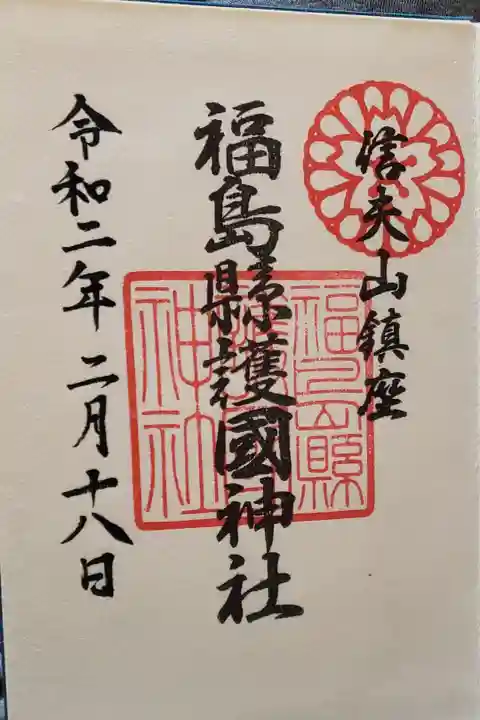 信夫山鎮座
福島縣護國神社
令和二年二月十八日
福島縣
護國
神社